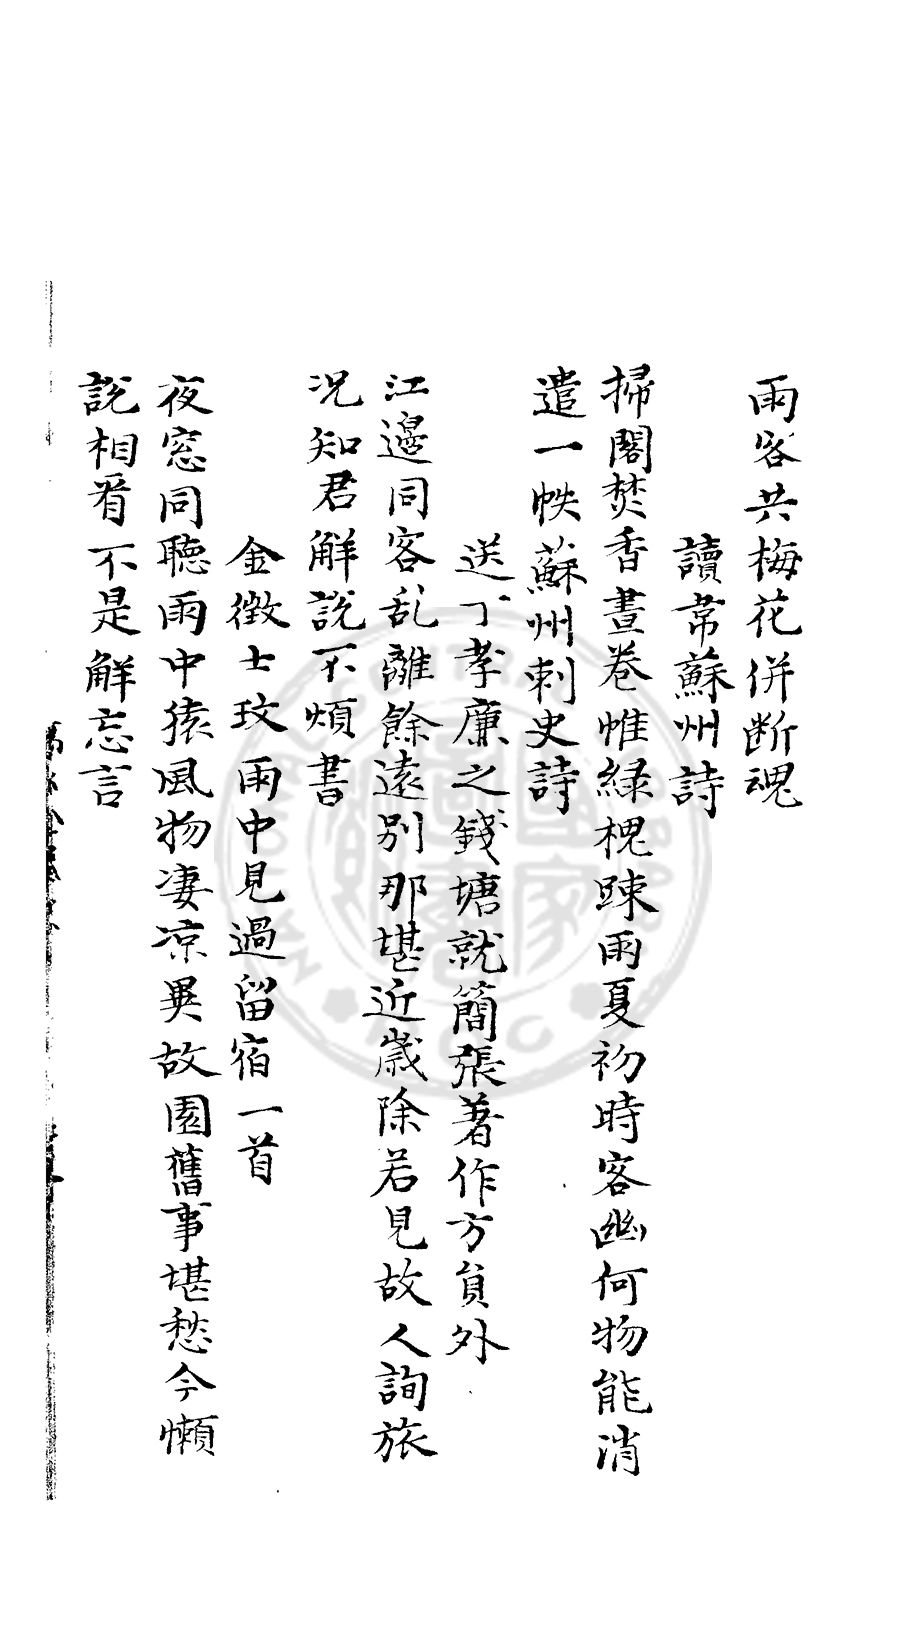 雨客共梅花併断魂
讀韋蘇州詩
掃閣焚香晝卷帷綠槐踈雨夏初時客幽何物能消
遣一帙蘇州刺史詩
送丁孝廉之錢塘就簡張著作方員外
江邊同客乱離餘遠別那堪近歲除若見故人詢旅
况知君解說不煩書
金徵士玟雨中見過留宿一首
夜窓同聽雨中猿風物凄凉異故園舊事堪愁今懶
說相看不是解忘言